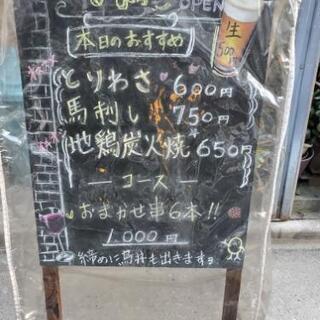 OPEN
生
500円
本日のおすすめ
とりわさ 600円
馬刺し 750円
地鶏炭火焼 650円
コース
おまかせ串6本!!
1,000円
締めに馬丼も出きます